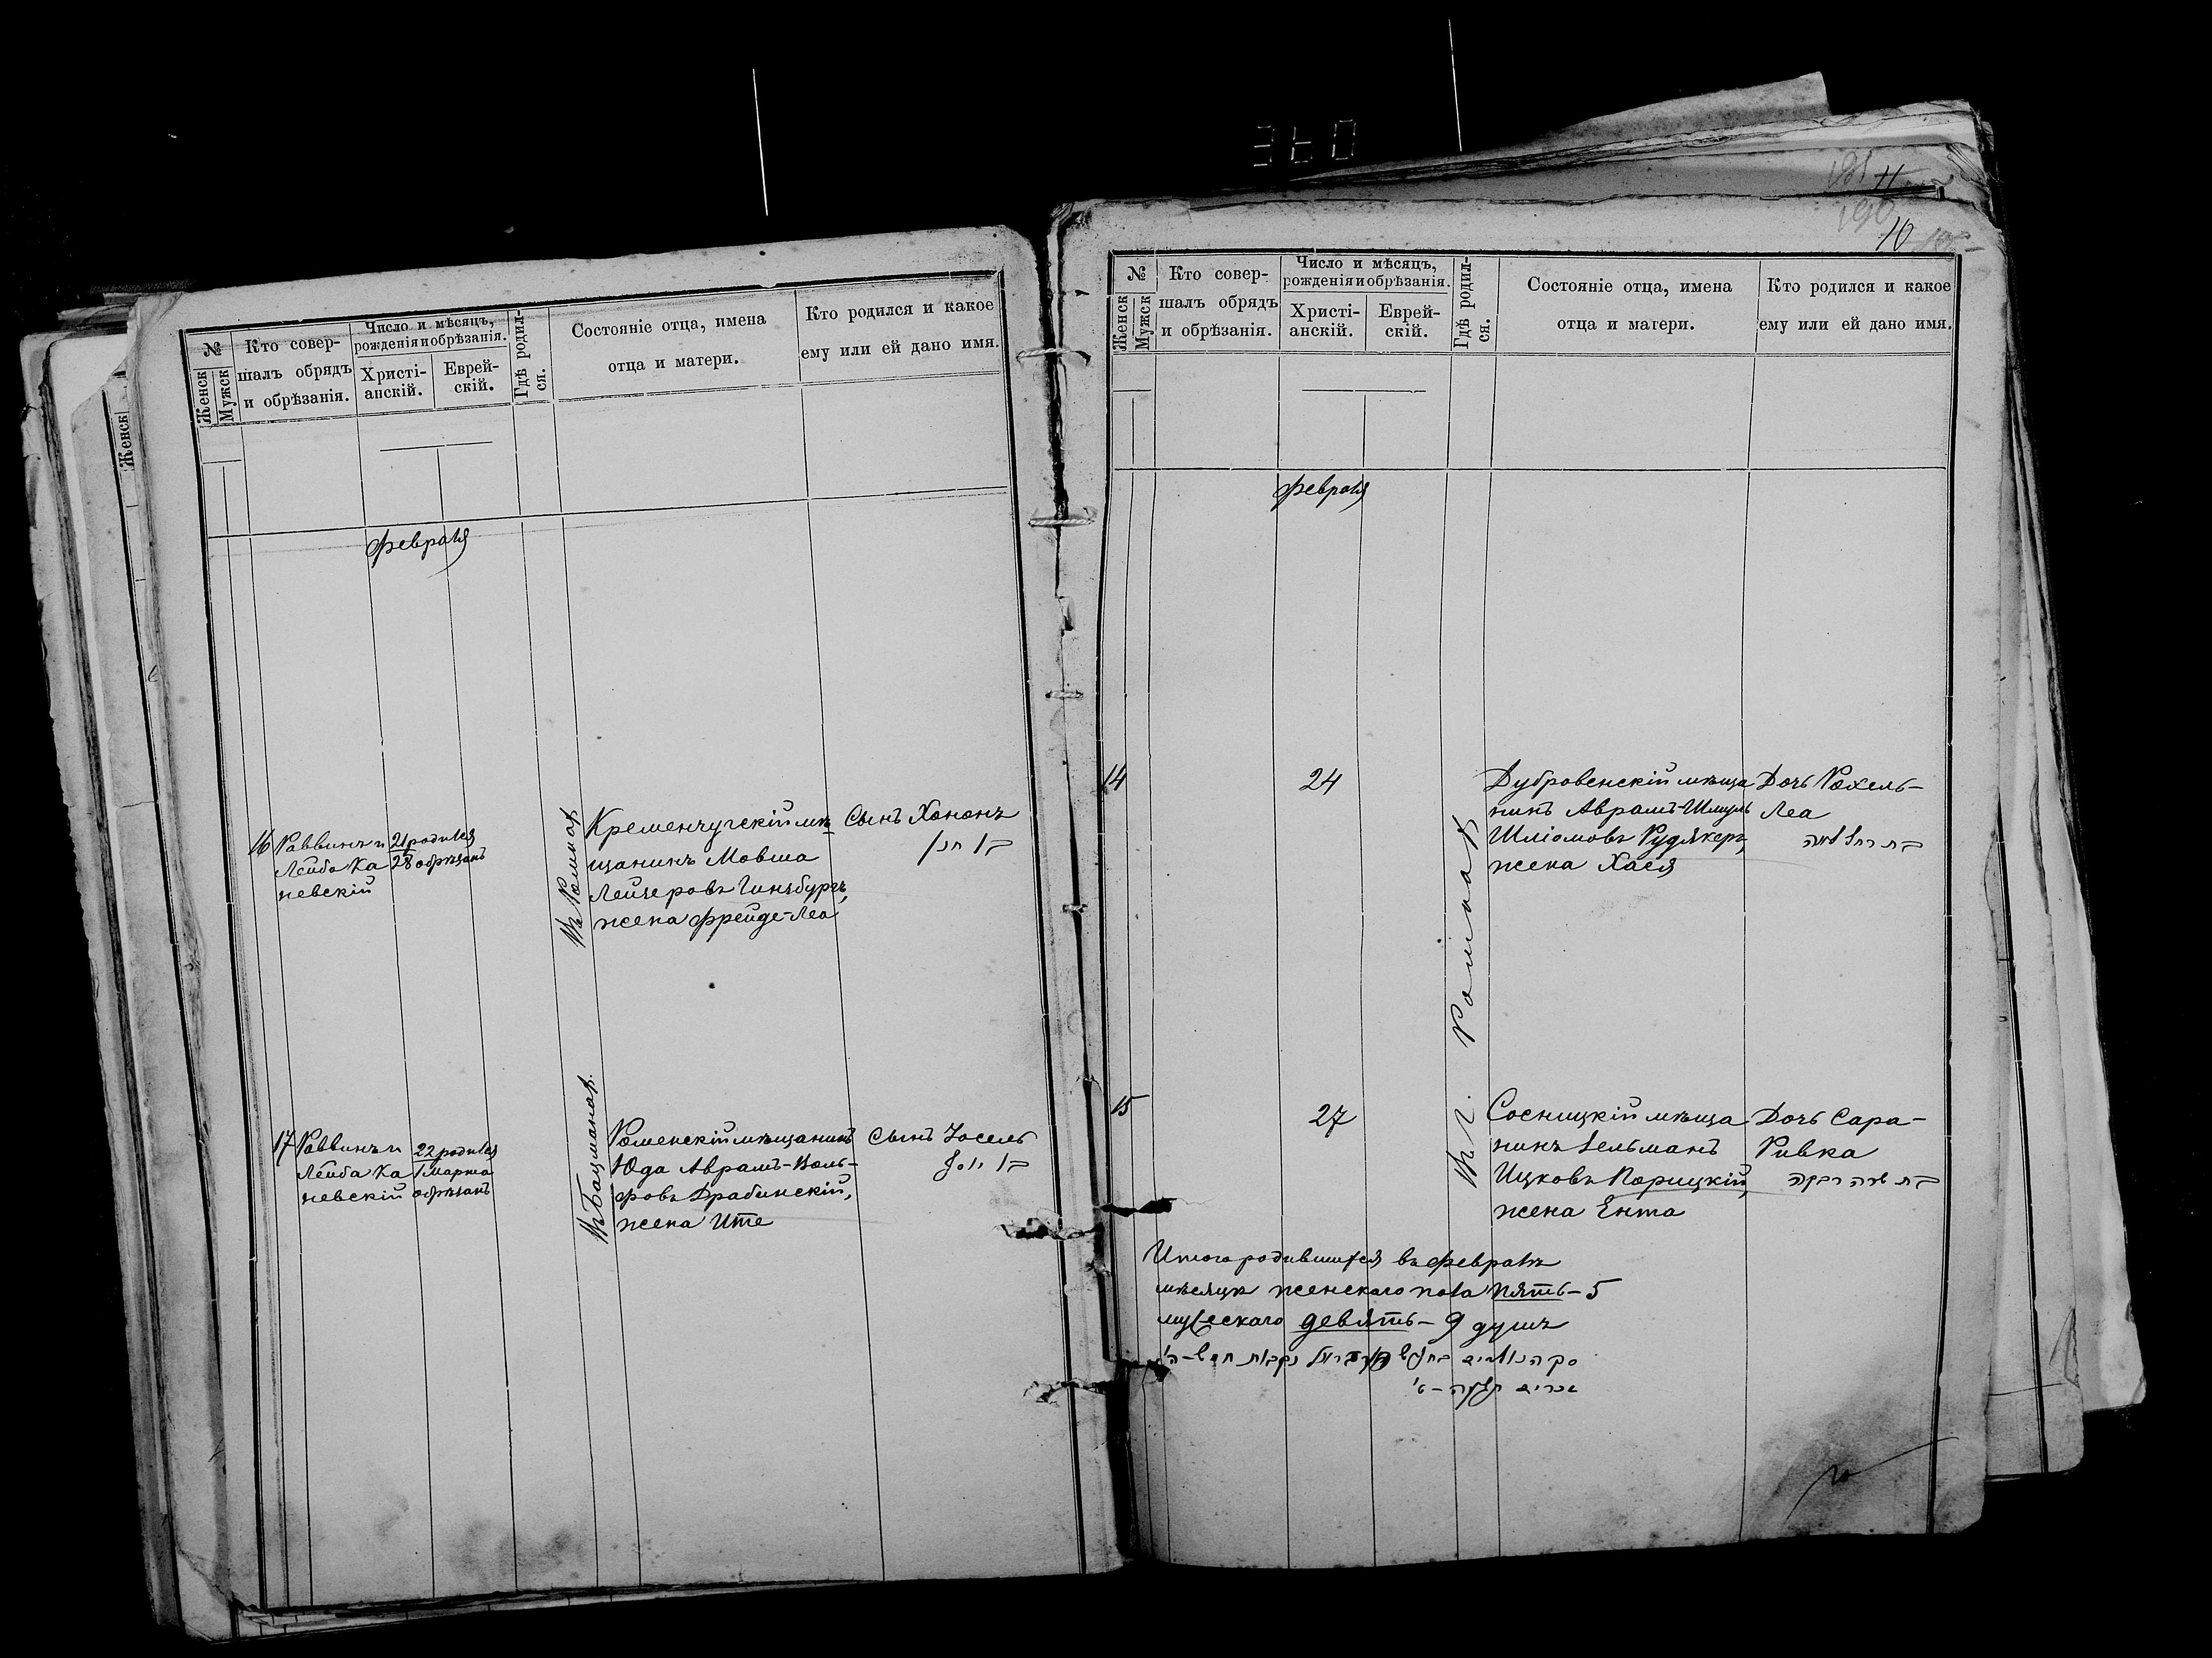 №
Женск
Мужск
Кто совер-
шалъ обрядъ
и обрѣзанія.
Число и мѣсяцъ,
рожденія и обрѣзанія.
Христі-
анскій.
Еврей-
скій.
Гдѣ родил-
ся.
Состояніе отца, имена
отца и матери.
Кто родился и какое
ему или ей дано имя.
Женск
Февраля
16
Раввинъ и
Лейба Ка
невскій
21 родился
28 обрѣзанъ
Въ Ромнах.
Кременчугскій мѣ
щанинъ Мовша
Лейзеровъ Гинзбургъ,
жена Фрейде-Леа
Сынъ Хононъ
בן חנן
17
Раввинъ и
Лейба Ка
невскій
22 родился
1 Марта
обрѣзанъ
Въ Бацманах.
Роменскій мѣщанинъ
Юда Аврамъ-Воль-
фовъ Драбинскій,
жена Ите
Сынъ Іосель
בן יוסף
10
№
Женск
Мужск
Кто совер-
шалъ обрядъ
и обрѣзанія.
Число и мѣсяцъ,
рожденія и обрѣзанія.
Христі-
анскій.
Еврей-
скій.
Гдѣ родил-
ся.
Состояніе отца, имена
отца и матери.
Кто родился и какое
ему или ей дано имя.
Февраля
14
24
Въ г. Ромнах
Дубровенскій мѣща
нинъ Аврамъ-Шмуль
Шліомовъ Рудякеръ,
жена Хася
Дочь Рохель-
Леа
בת רחל לאה
15
27
Сосницкій мѣща
нинъ Зельманъ
Ицковъ Порицкій,
жена Ента
Дочь Сара-
Ривка
בת שרה רבקה
Итого родившихся въ Февралѣ
мѣсяцѣ женскаго пола пять - 5
мужескаго девять - 9 душъ
סך הנולדים בחדש נקבות חמש - ה'
זכרים תשעה - ט'